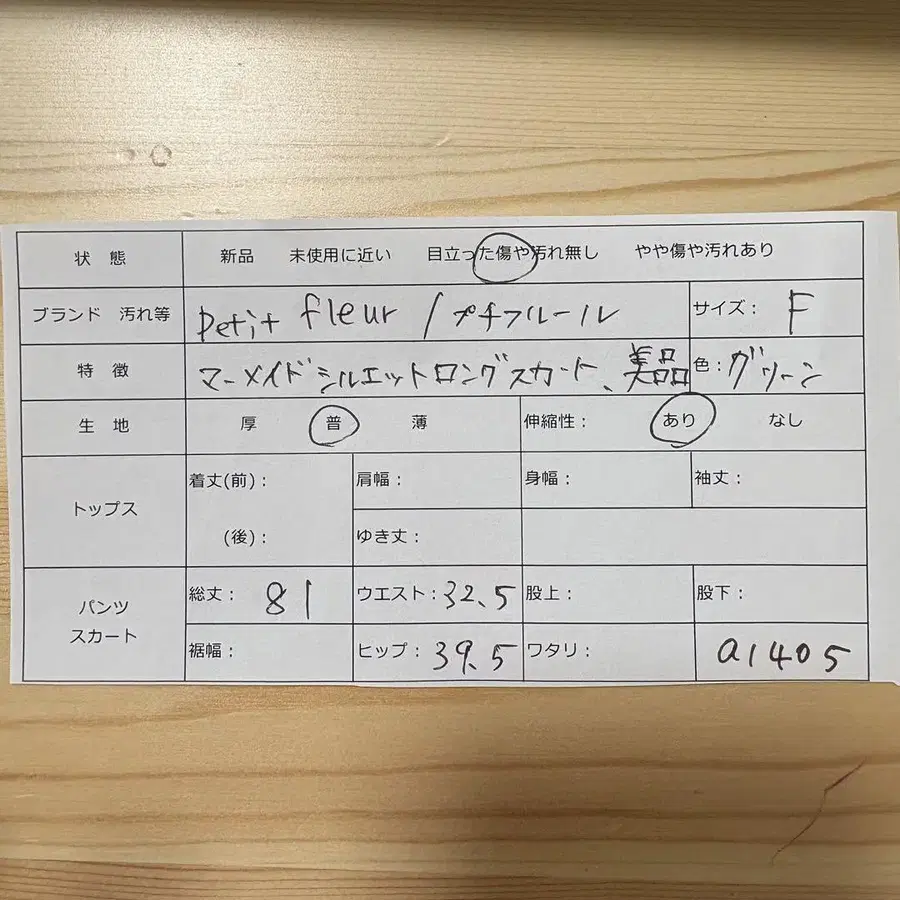 状 態 新品 未使用に近い 目立った傷や汚れ無し やや傷や汚れあり
ブランド 汚れ等 petit fleur / プチフルール サイズ: F
特 徴 マーメイドシルエットロングスカート、美品 色:グリーン
生 地 厚 普 薄 伸縮性: あり なし
トップス 着丈(前): 肩幅: 身幅: 袖丈:
(後): ゆき丈:
パンツ スカート 総丈: 81 ウエスト:32.5 股上: 股下:
裾幅: ヒップ:39.5 ワタリ: a1405